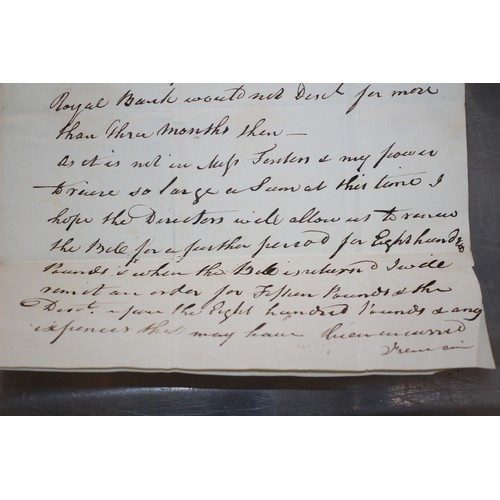 Royal Bank would not Disct for more
than three months then —
as it is not in Messrs & my power
to raise so large a Sum at this time I
hope the Directors will allow us to renew
the Bill for a further period for Eight hundd
Pounds & when the Bill is returned I will
remit an order for Fifteen Pounds & the
Disct upon the Eight hundred Pounds & any
expences that may have been incurred